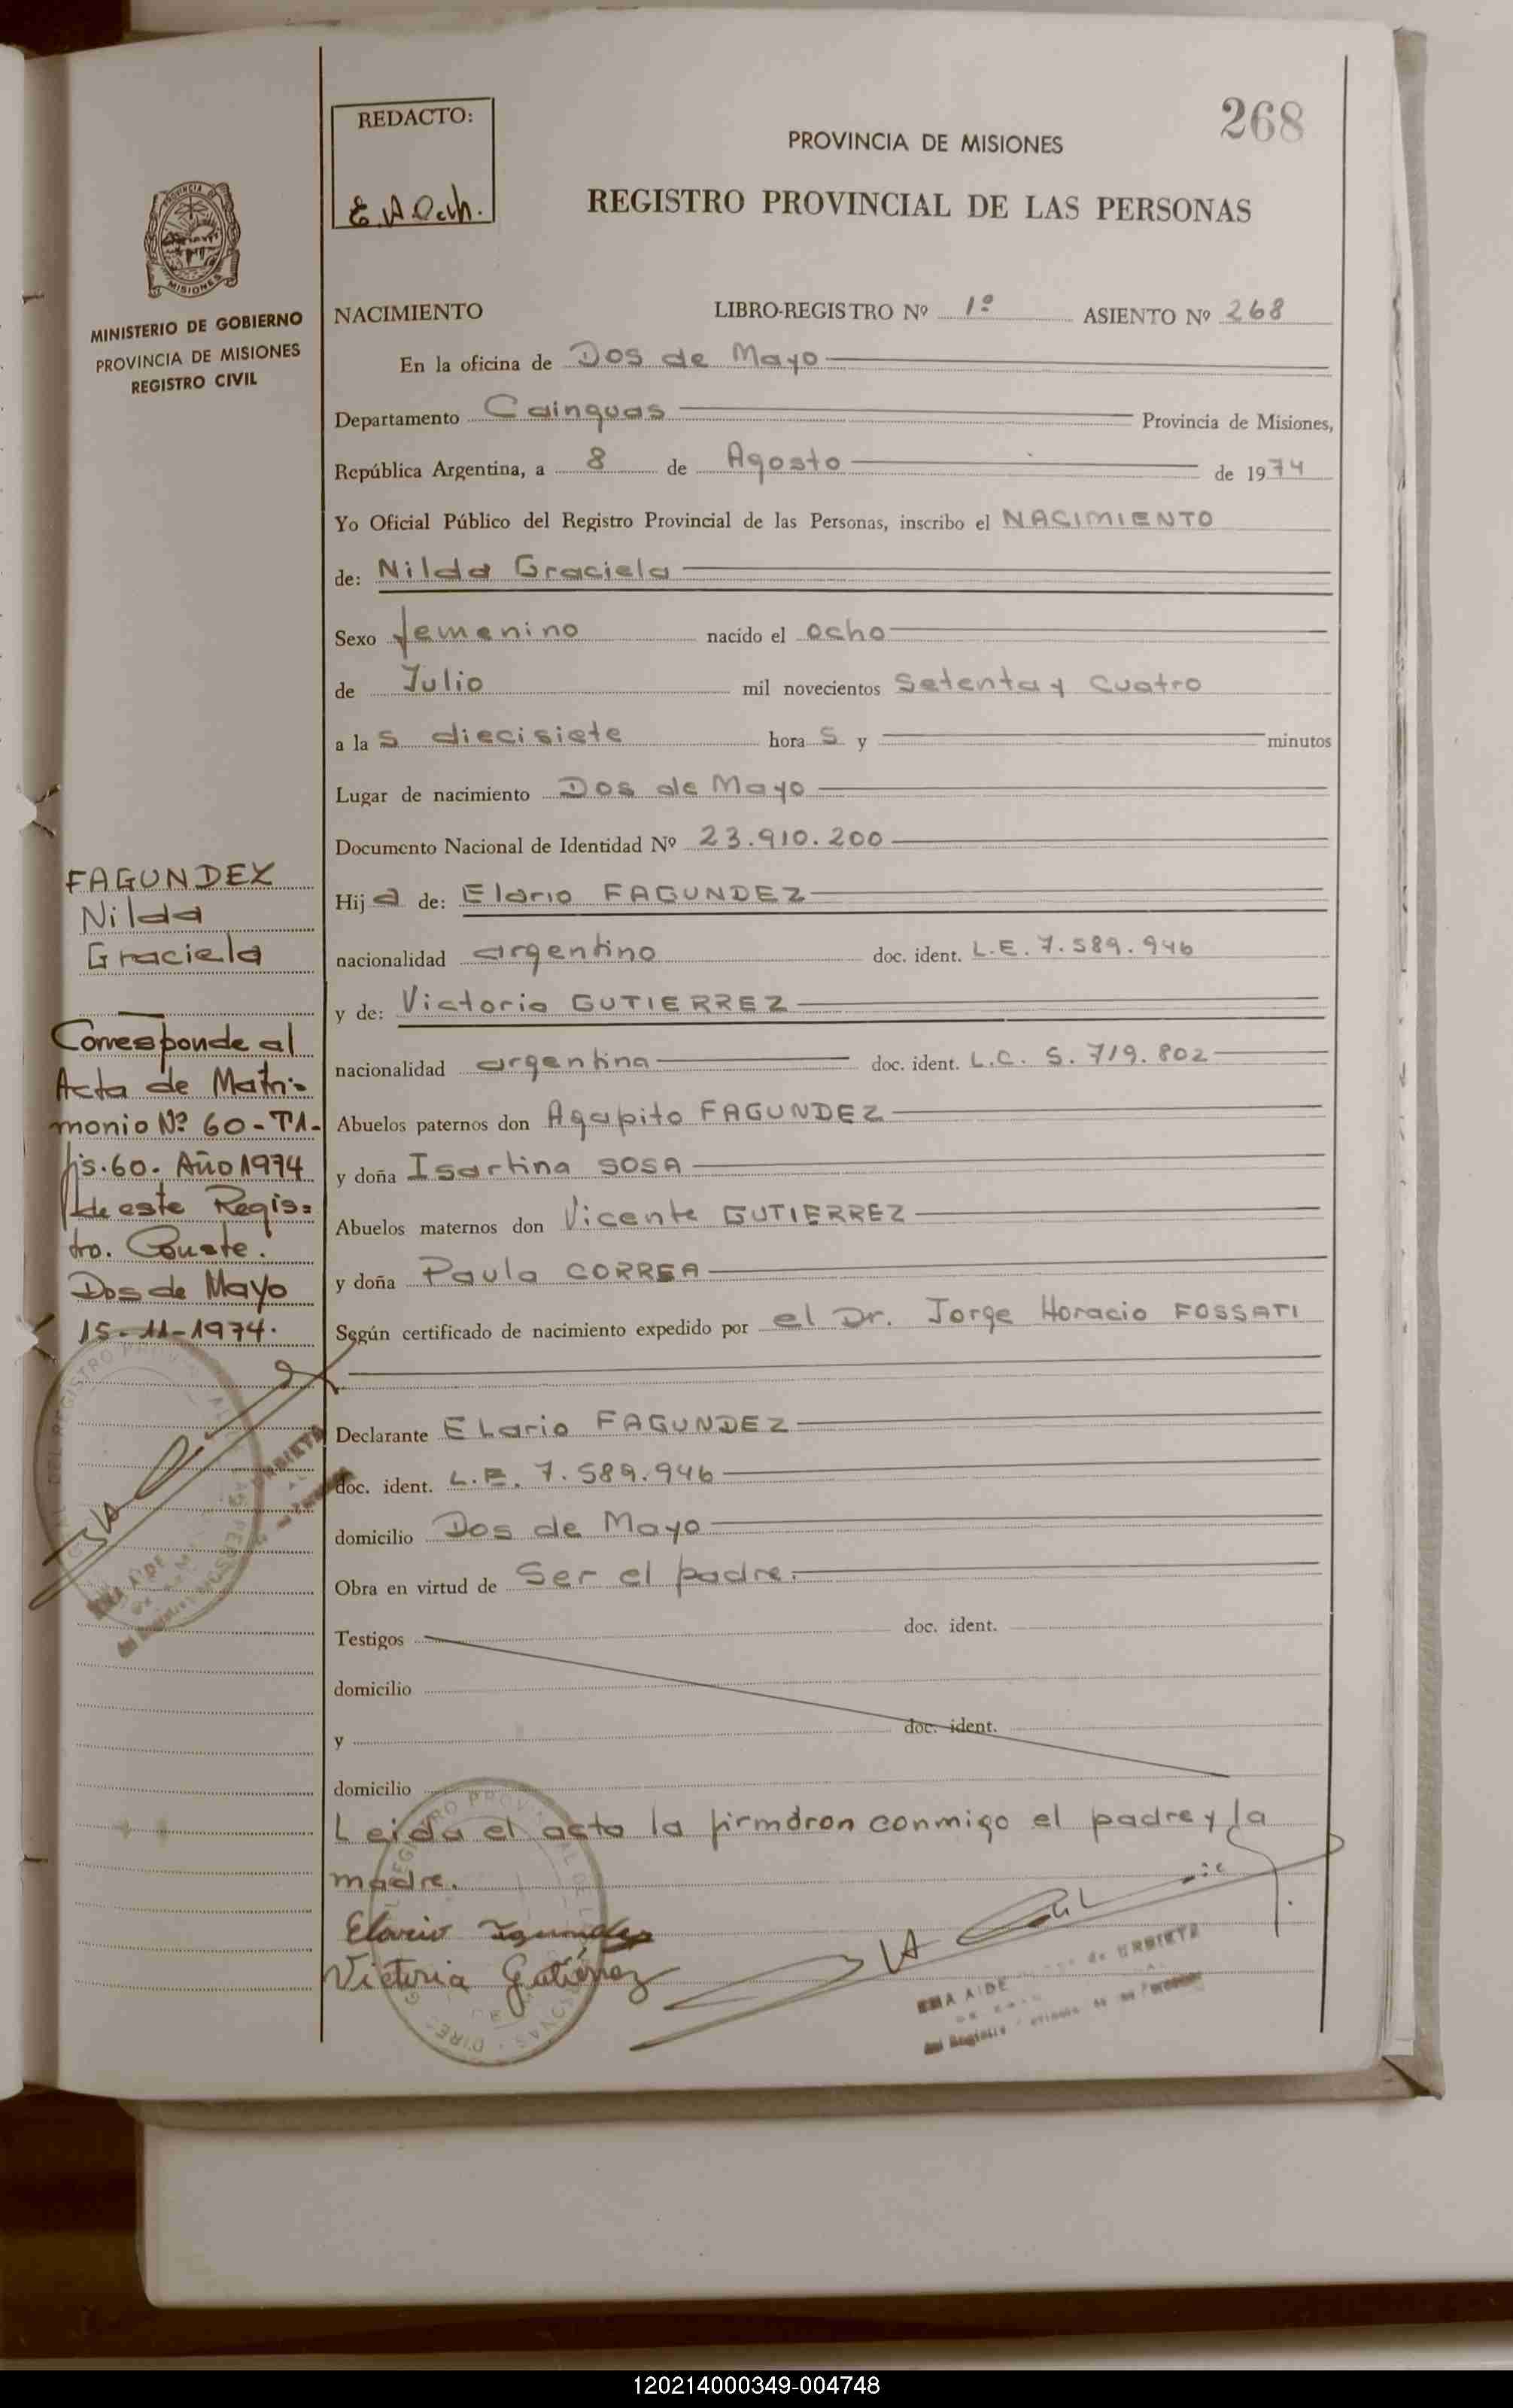 268
REDACTO:
PROVINCIA DE MISIONES
REGISTRO PROVINCIAL DE LAS PERSONAS
PROVINCIA DE
MISIONES
MINISTERIO DE GOBIERNO
PROVINCIA DE MISIONES
REGISTRO CIVIL
NACIMIENTO LIBRO-REGISTRO Nº 1º ASIENTO Nº 268
En la oficina de Dos de Mayo
Departamento Cainguas Provincia de Misiones,
República Argentina, a 8 de Agosto de 1974
Yo Oficial Público del Registro Provincial de las Personas, inscribo el NACIMIENTO
de: Nilda Graciela
Sexo femenino nacido el ocho
de Julio mil novecientos Setenta y Cuatro
a la s diecisiete hora s y minutos
Lugar de nacimiento Dos de Mayo
Documento Nacional de Identidad Nº 23.910.200
Hij a de: Elario FAGUNDEZ
nacionalidad argentino doc. ident. L.E. 7.589.946
y de: Victoria GUTIERREZ
nacionalidad argentina doc. ident. L.C. 5.719.802
Abuelos paternos don Agapito FAGUNDEZ
y doña Isartina SOSA
Abuelos maternos don Vicente GUTIERREZ
y doña Paula CORREA
Según certificado de nacimiento expedido por el Dr. Jorge Horacio FOSSATI
Declarante Elario FAGUNDEZ
doc. ident. L.E. 7.589.946
domicilio Dos de Mayo
Obra en virtud de Ser el padre.
Testigos doc. ident.
domicilio
y doc. ident.
domicilio
Leida el acta la firmáron conmigo el padre y la
madre.
Elario
Victoria Gutiérrez
FAGUNDEZ
Nilda
Graciela
Corresponde al
Acta de Matri=
monio Nº 60-T1-
fs.60. Año 1974
de este Regis=
tro. Conste.
Dos de Mayo
15-11-1974.
120214000349-004748